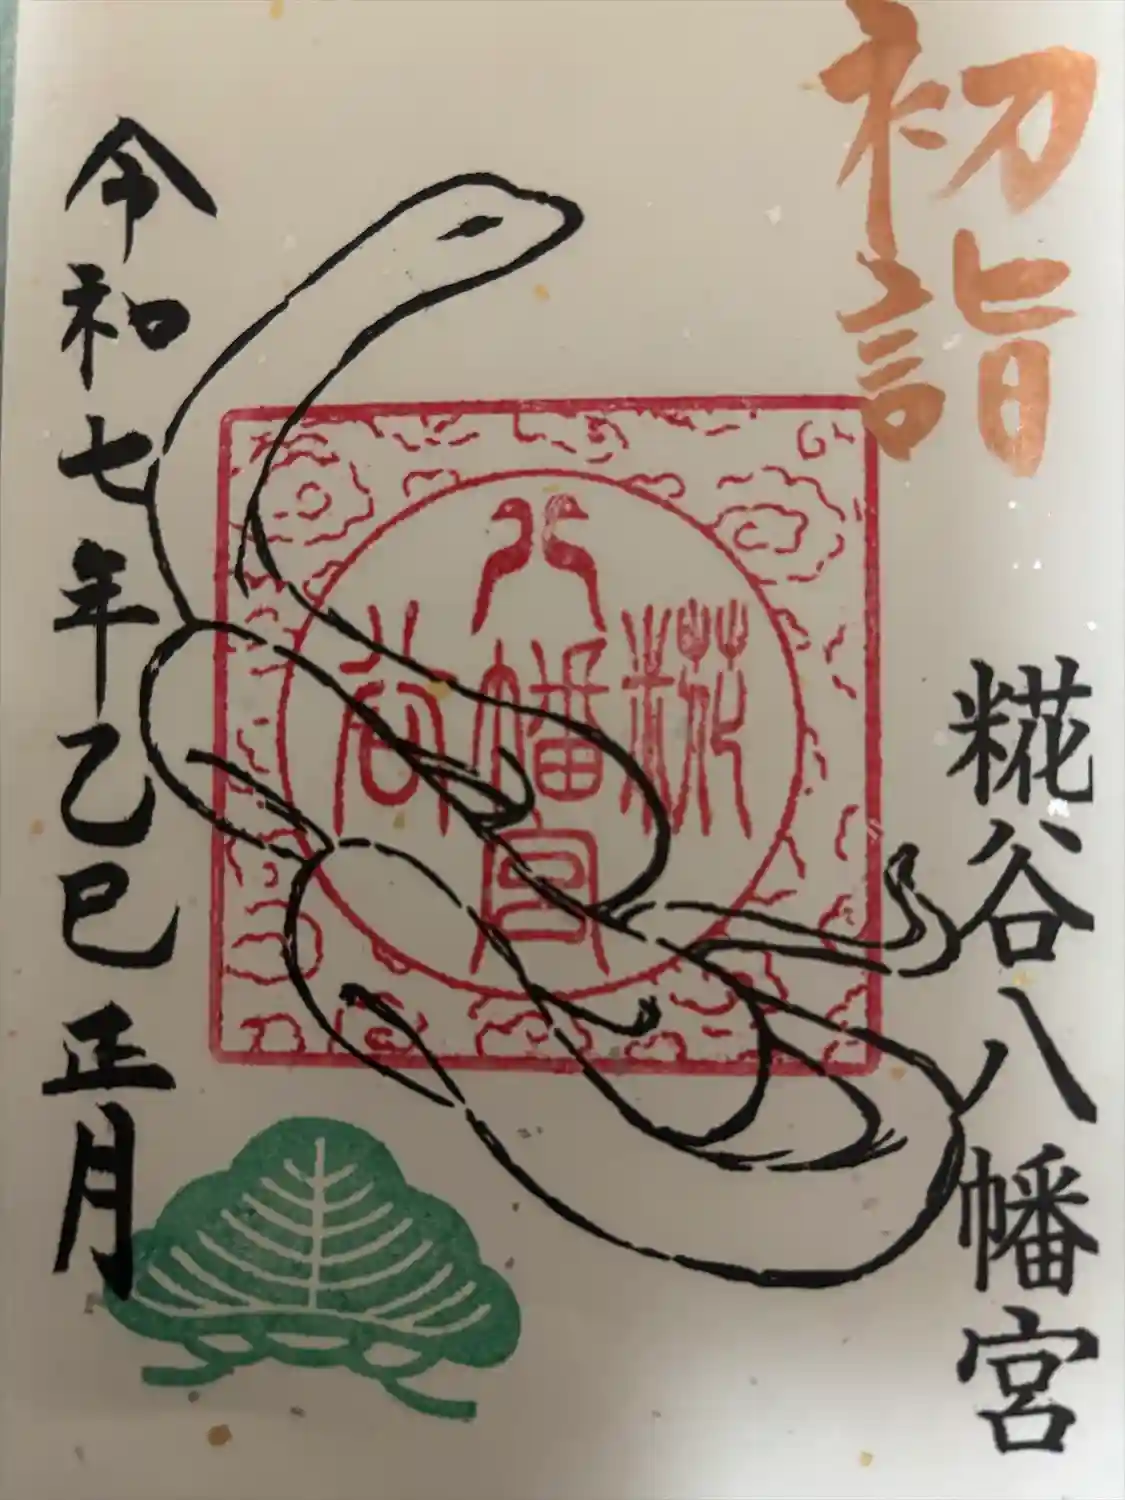 初詣
糀谷八幡宮
糀
八幡宮
谷
令和七年乙巳正月